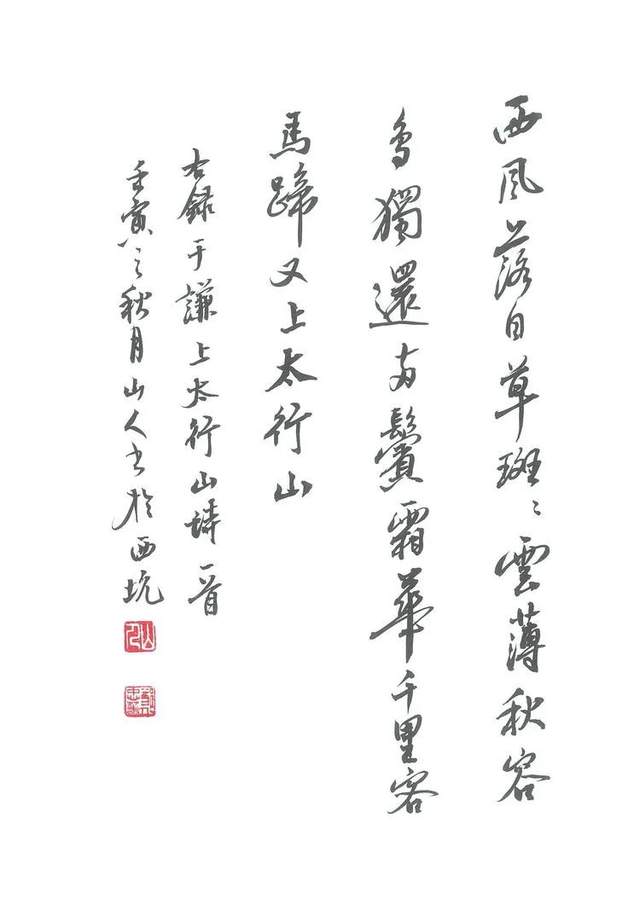 西風落日草斑〻雲薄秋容
鳥獨還兩鬢霜華千里客
馬蹄又上太行山
右錄于謙上太行山詩一首
壬寅之秋月山人書於西坑
山人